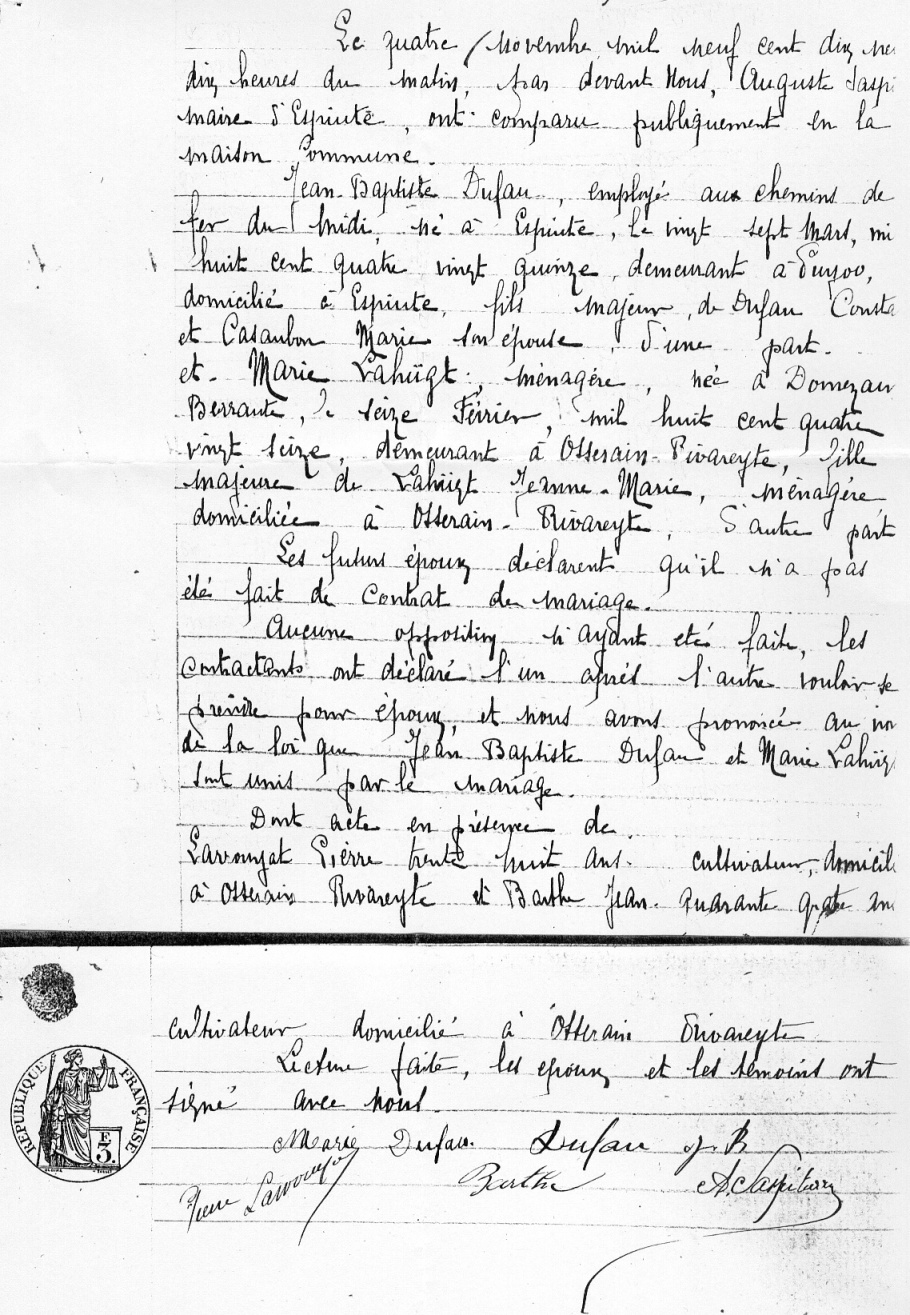 Le quatre Novembre mil neuf cent dix ne
dix heures du matin, par devant Nous, Auguste Saspi
maire d'Espiute, ont comparu publiquement en la
maison Commune.
Jean-Baptiste Dufau, employé aux chemins de
fer du Midi, né à Espiute, le vingt sept Mars, mi
huit cent quatre vingt quinze, demeurant à Puyoo,
domicilié à Espiute, fils majeur, de Dufau Consta
et Casaubon Marie son épouse, d'une part.
et. Marie Lahüigt, ménagère, née à Domezain
Berraute, le seize Février, mil huit cent quatre
vingt seize, demeurant à Osserain-Rivareyte, fille
majeure de Lahüigt Jeanne-Marie, ménagère
domiciliée à Osserain-Rivareyte, d'autre part
Les futurs époux déclarent qu'il n'a pas
été fait de contrat de mariage.
Aucune opposition n'ayant été faite, les
contractants ont déclaré l'un après l'autre vouloir se
prendre pour époux, et nous avons prononcé au no
de la loi que Jean Baptiste Dufau et Marie Lahüig
sont unis par le mariage.
Dont acte en présence de.
Larrouyat Pierre trente huit ans. cultivateur, domicil
à Osserain Rivareyte et Barthe Jean. quarante quatre an
cultivateur domicilié à Osserain Rivareyte
Lecture faite, les époux et les témoins ont
signé avec nous.
RÉPUBLIQUE FRANÇAISE
F 3.
Marie Dufau. Dufau J B
Pierre Larrouyat Barthe A Saspiturry